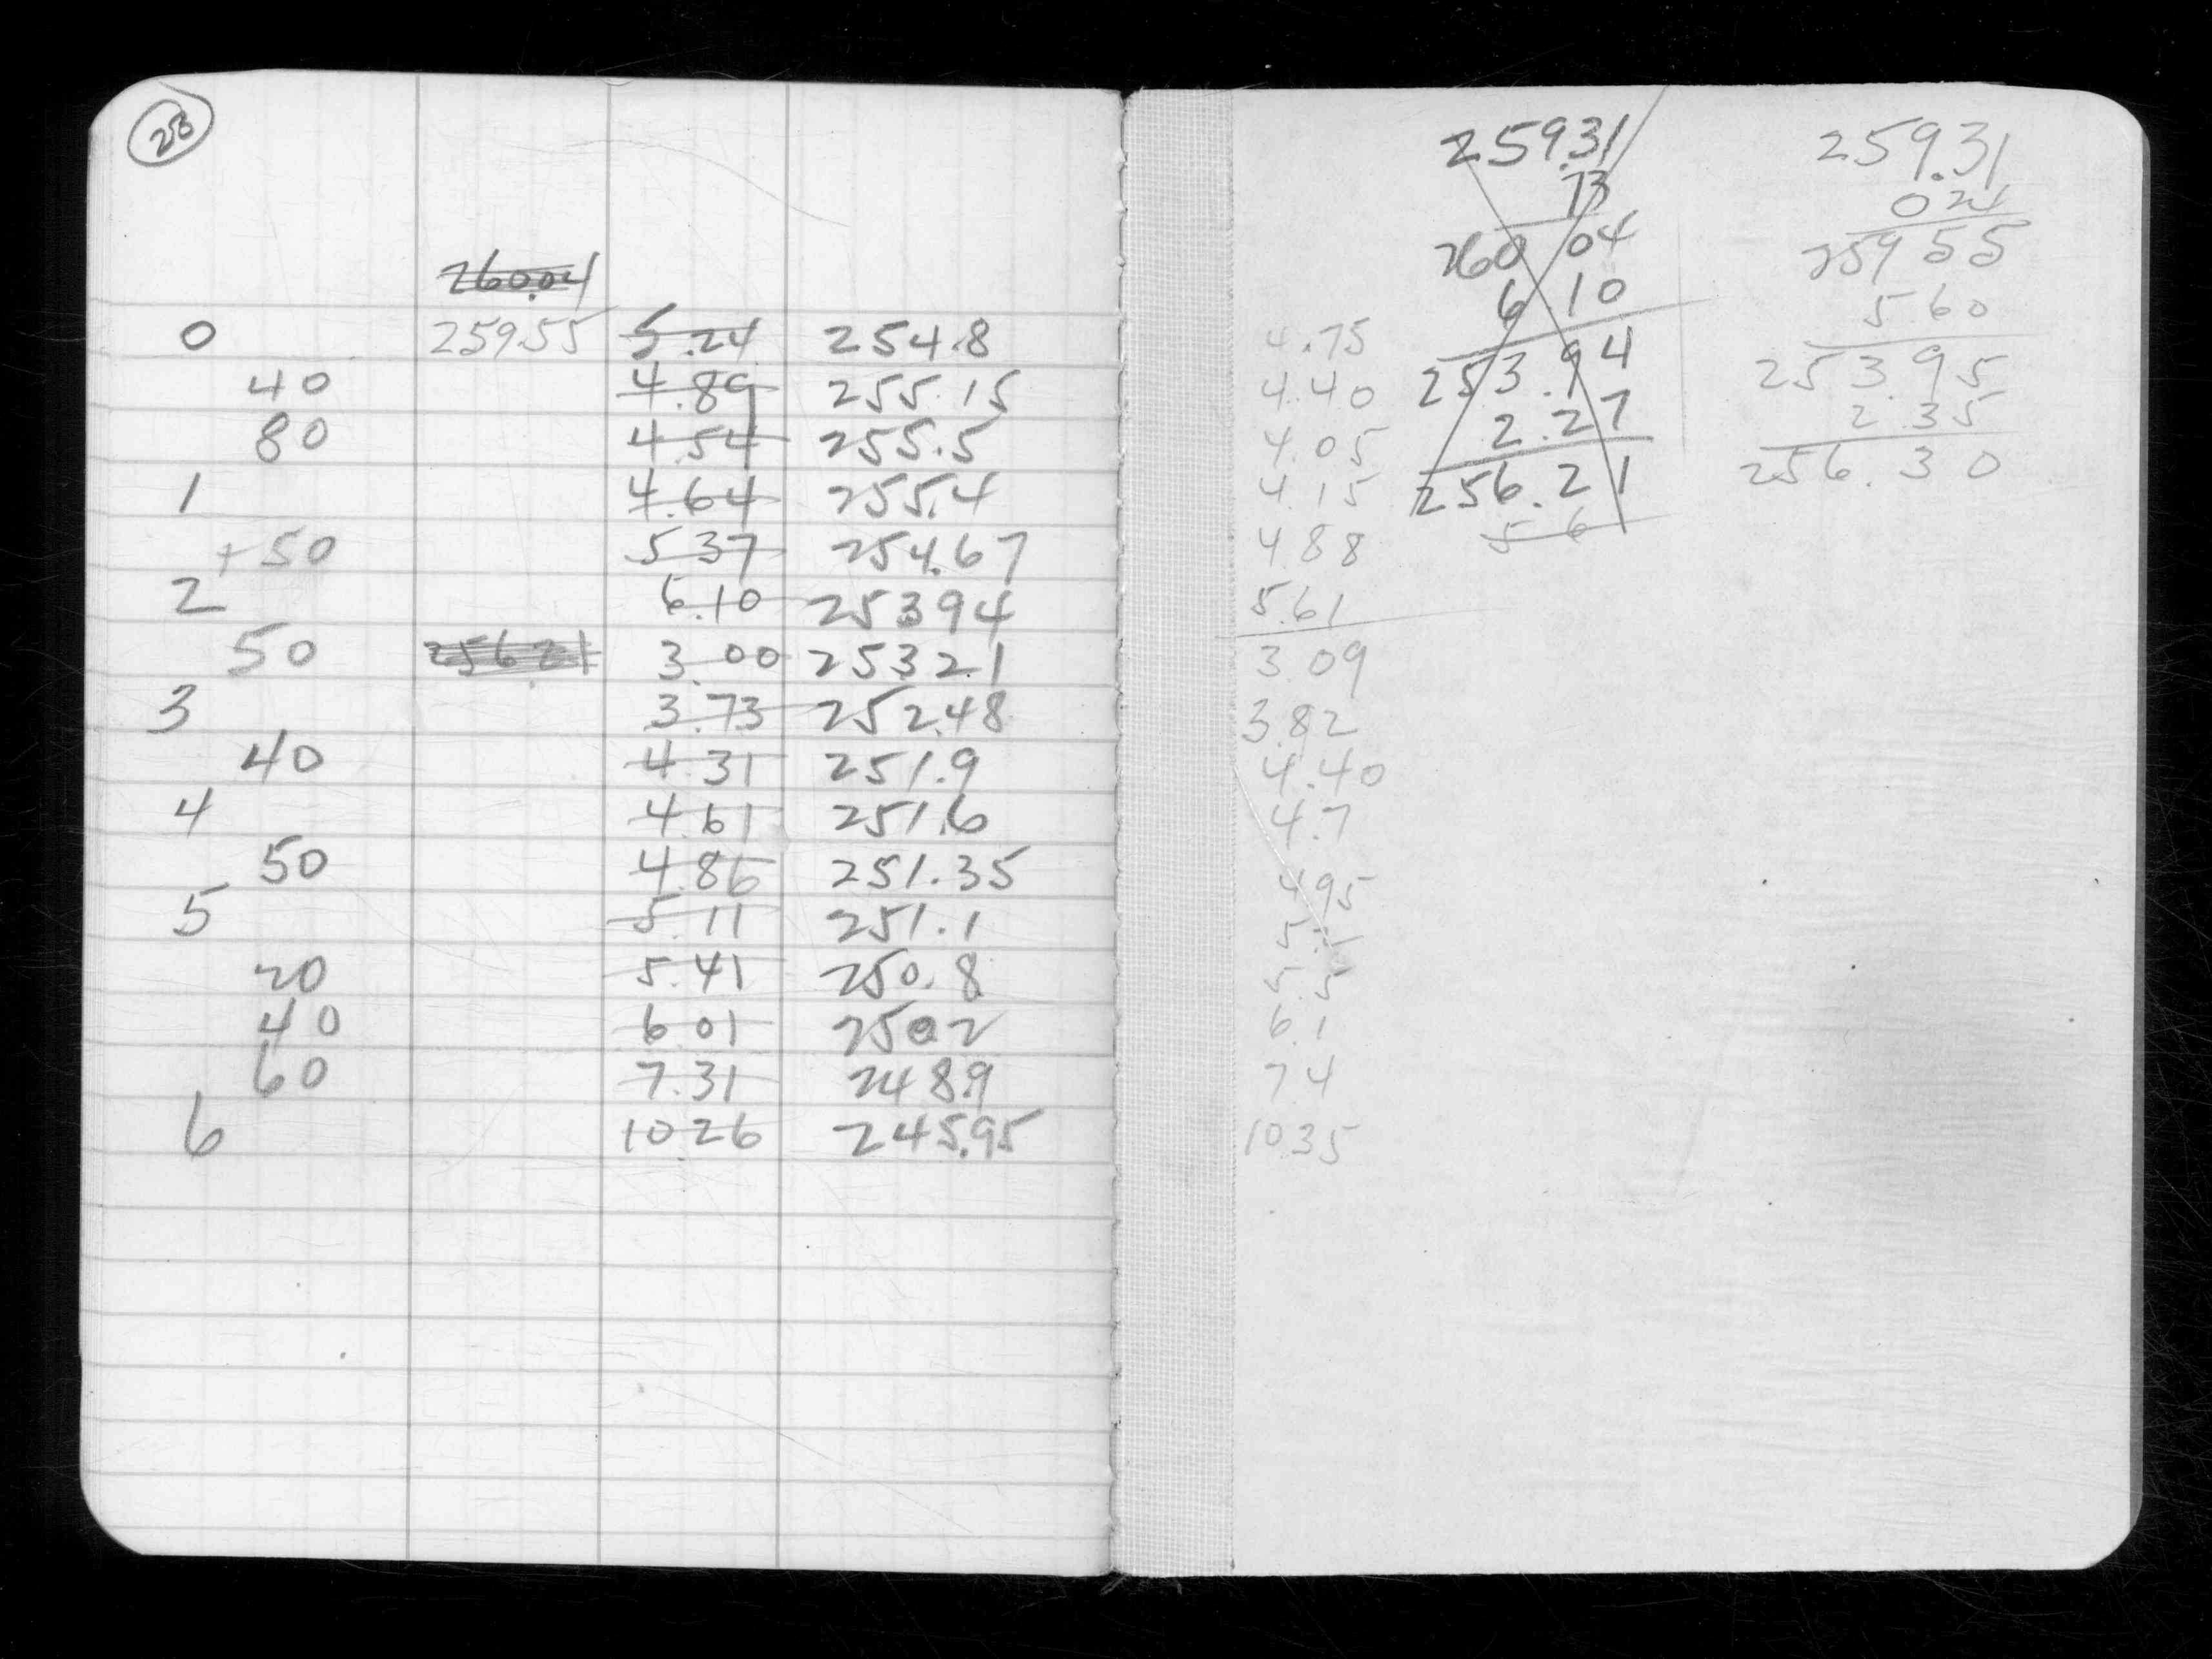 28
260.04
0 259.55 5.24 254.8
40 4.89 255.15
80 4.54 255.5
1 4.64 255.4
+50 5.37 254.67
2 6.10 253 94
50 256 21 3.00 253 2.1
3 3.73 252.48
40 4.31 251.9
4 4.61 251.6
50 4.86 251.35
5 5.11 251.1
20 5.41 250.8
40 6 01 250 2
60 7.31 248.9
6 10.26 245.95
4.75
4.40
4.05
4.15
4.88
5.61
3.09
3.82
4.40
4.7
4.95
5.5
6.1
7.4
10.35
259.31
73
260 04
6 10
253.94
2.27
256.21
5 6
259.31
0 24
259 55
5.60
253.95
2.35
256.30